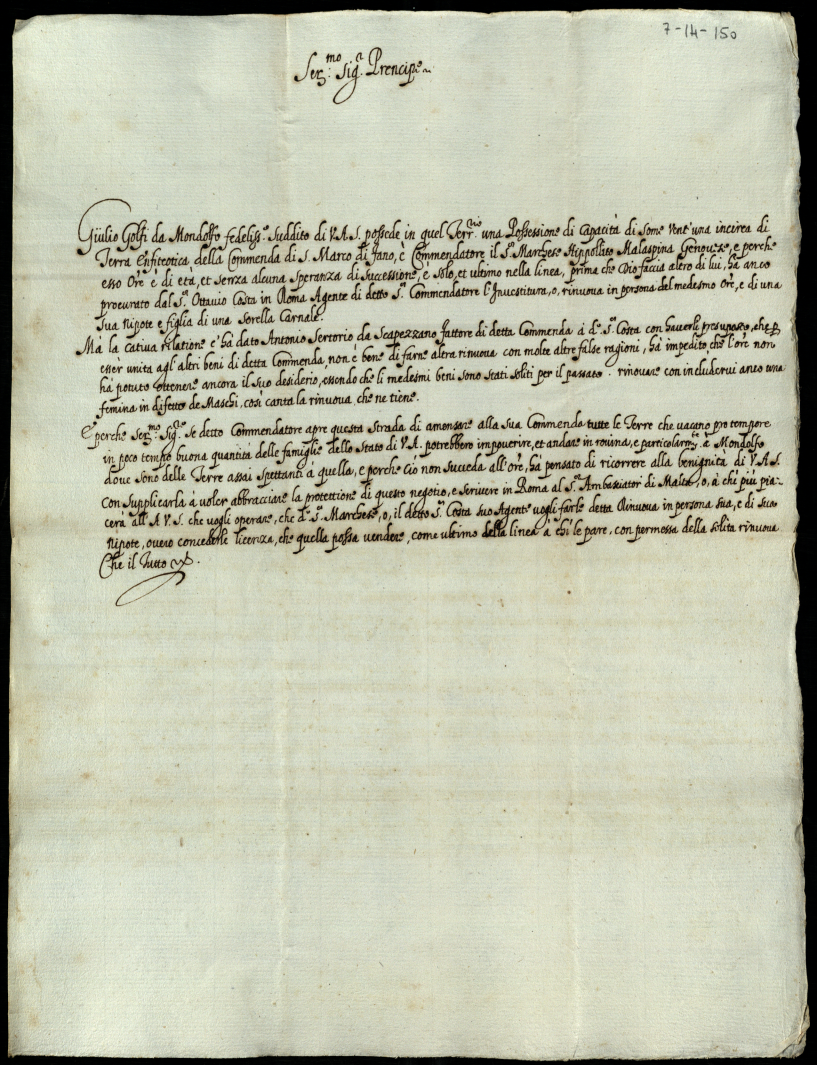 7-14-150
Ser.mo Sig.r Prencipe
Giulio Golfi da Mondolfo fedeliss.o suddito di V.A.S. possede in quel Terr.rio una Possessione di Capacità di some vent'una incirca di
Terra Enfiteotica della Commenda di S. Marco di fano, è Commendatore il S.r Marchese Hippolito Malaspina Genovese, e perche
esso Ore è di età, et senza alcuna speranza di successione, e solo, et ultimo nella linea, prima che Dio facia altro di lui, hà anco
procurato dal S.r Ottavio Costa in Roma Agente di detto S.r Commendatore l'Investitura, o, rinuova in persona del medesmo Ore, e di una
sua nipote e figlia di una sorella Carnale.
Mà la cativa relatione c'hà dato Antonio Sertorio da Scapezzano fattore di detta Commenda à d.o S.r Costa con haverli presuposto, che p
esser unita agl'altri beni di detta Commenda, non è bene di farne altra rinuova con molte altre false ragioni, hà impedito che l'ore non
hà potuto ottenere ancora il suo desiderio, essendo che li medesmi beni sono stati soliti per il passato rinovare con includervi anco una
femina in difetto de Maschi, così canta la rinuova che ne tiene.
E perche Ser.mo Sig.r se detto Commendatore apre questa strada di amensare alla sua Commenda tutte le Terre che vacano pro tempore
in poco tempo buona quantità delle famiglie dello stato di V.A. potrebbero impoverire, et andare in rovina, e particolarm.te à Mondolfo
dove sono delle Terre assai spettanti à quella, e perche ciò non succeda all'ore, hà pensato di ricorrere alla benignità di V.A.S.
con supplicarla à voler abbracciare la protettione di questo negotio, e scrivere in Roma al S.r Ambasciator di Malta, o, à chi più pia:
cerà all'A.V.S. che vogli operare, che d.o S.r Marchese, o, il detto S.r Costa suo Agente vogli farle detta Rinuova in persona sua, e di sua
nipote, overo concederle licenza, che quella possa vendere, come ultimo della linea à chi le pare, con permessa della solita rinuova
Che il tutto